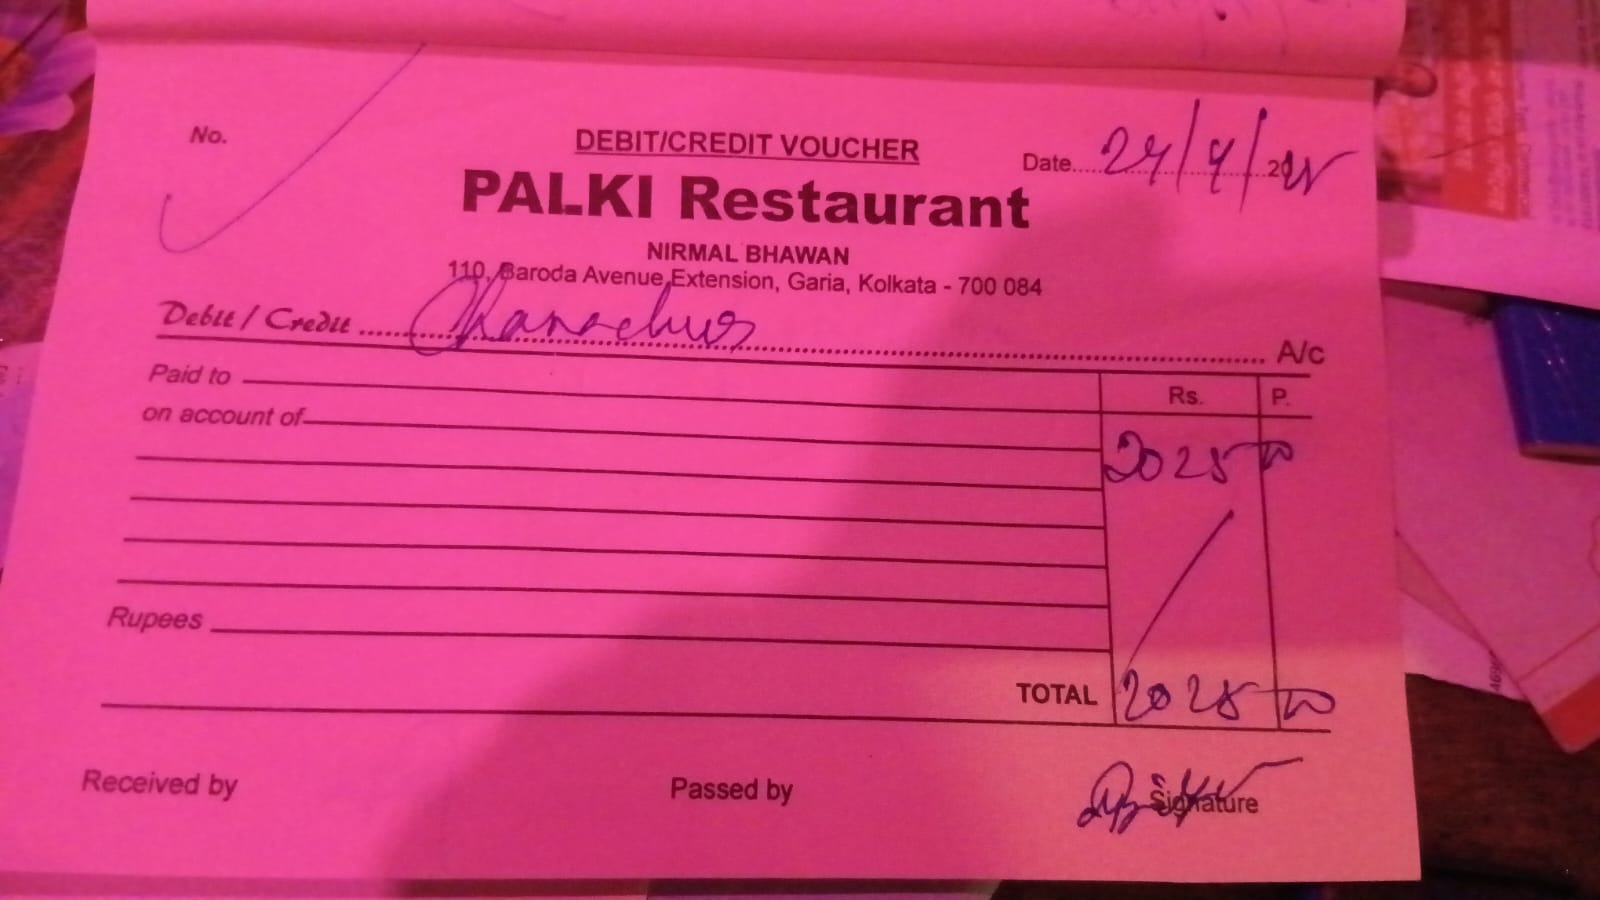 No.
DEBIT/CREDIT VOUCHER
Date
PALKI Restaurant
NIRMAL BHAWAN
110, Baroda Avenue Extension, Garia, Kolkata - 700 084
Debit / Credit Chanachur A/c
Paid to Rs. P.
on account of
2025 00
Rupees
TOTAL 2025 00
Received by Passed by Signature